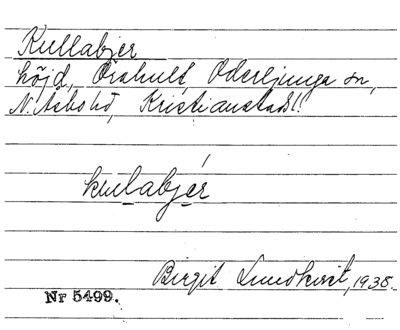 Kullabjer
höjd, Örahult Oderljunga sn,
N. Åsbo hd, Kristianstads l.
kulabjér
Birgit Lundkvist, 1935.
Nr 5499.